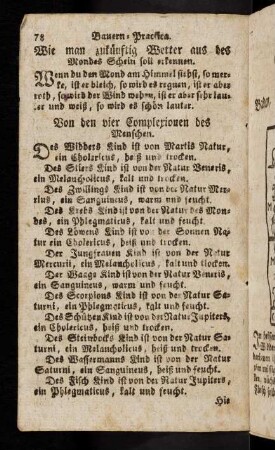 78 Bauern-Practica.
Wie man zukünftig Wetter aus des
Mondes Schein soll erkennen.
Wenn du den Mond am Himmel siehst, so mer-
ke, ist er bleich, so wird es regnen, ist er aber
roth, so wird der Wind wehen, ist er aber sehr lau-
ter und weiß, so wird es schön lauter.
Von den vier Complexionen des
Menschen.
Des Widders Kind ist von Martis Natur,
ein Cholericus, heiß und trocken.
Des Stiers Kind ist von der Natur Veneris,
ein Melancholicus, kalt und trocken.
Des Zwillings Kind ist von der Natur Mer-
kius, ein Sanguineus, warm und feucht.
Des Krebs Kind ist von der Natur des Mon-
des, ein Phlegmaticus, kalt und feucht.
Des Löwens Kind ist von der Sonnen Na-
tur ein Cholericus, heiß und trocken.
Der Jungfrauen Kind ist von der Natur
Mercurii, ein Melancholicus, kalt und trocken.
Der Waage Kind ist von der Natur Veneris,
ein Sanguineus, warm und feucht.
Des Scorpions Kind ist von der Natur Sa-
turni, ein Phlegmaticus, kalt und feucht.
Des Schützen Kind ist von der Natur Jupiters,
ein Cholericus, heiß und trocken.
Des Steinbocks Kind ist von der Natur Sa-
turni, ein Melancholicus, heiß und trocken.
Des Wassermanns Kind ist von der Natur
Saturni, ein Sanguineus, heiß und feucht.
Des Fisch Kind ist von der Natur Jupiters,
ein Phlegmaticus, kalt und feucht.
Hie